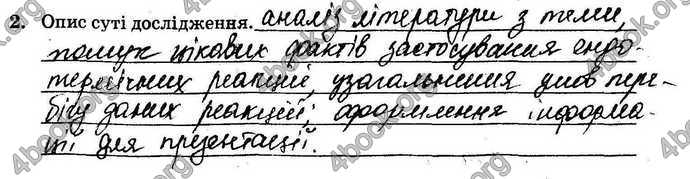 2. Опис суті дослідження. аналіз літератури з теми,
пошук цікавих фактів застосування ендо-
термічних реакцій, узагальнення умов пере-
бігу даних реакцій; оформлення інформа-
ції для презентації.